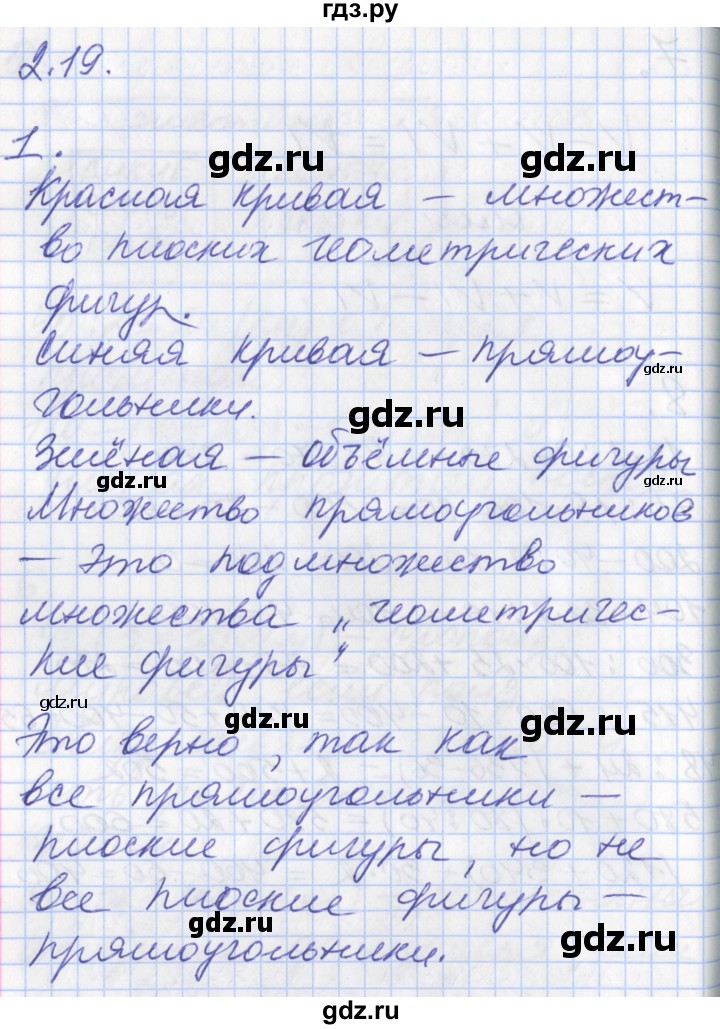 гдз.ру
2.19.
1.
gdz.ru
gdz.ru
Красная кривая — множест-
во плоских геометрических
фигур.
Синяя кривая — прямоу-
гольники.
gdz.ru
Зелёная — объёмные фигуры
gdz.ru
gdz.ru
Множество прямоугольников
— это подмножество
множества „геометричес-
кие фигуры“
gdz.ru
gdz.ru
Это верно, так как
все прямоугольники —
плоские фигуры, но не
все плоские фигуры —
gdz.ru
gdz.ru
прямоугольники.
gdz.ru